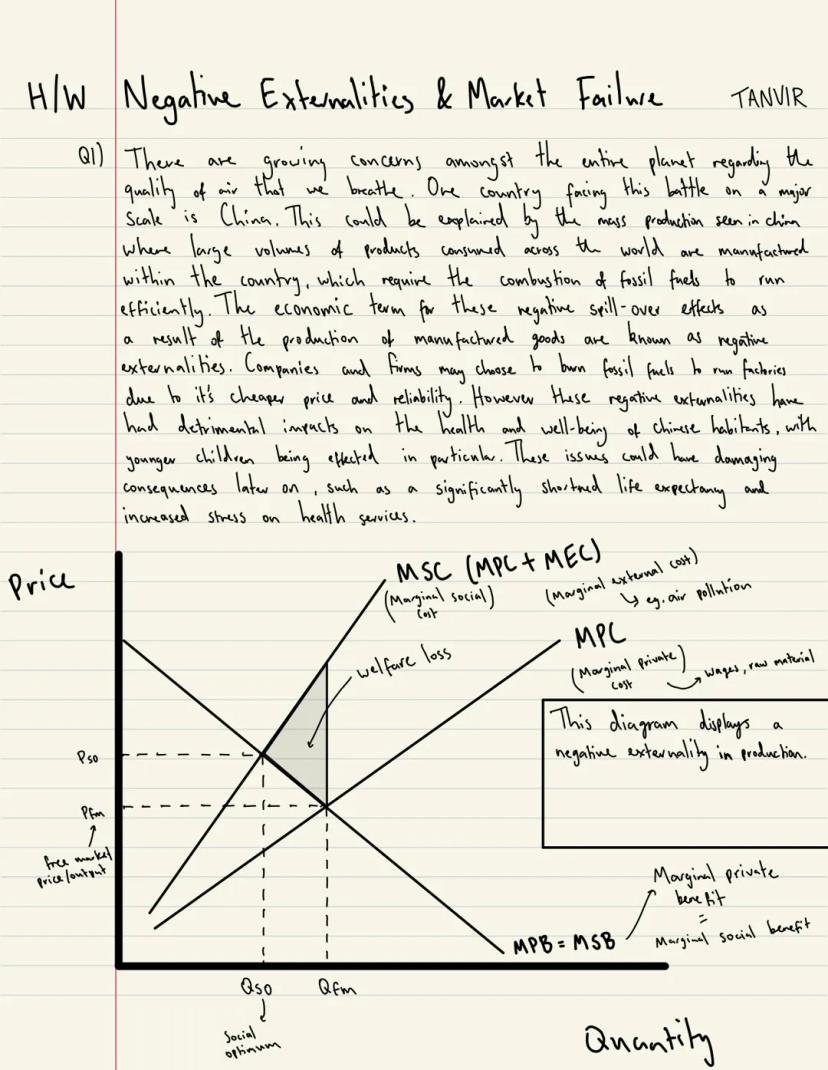 H/W Negative Externalities & Market Failure TANVIR
Q1) There are growing concerns amongst the entire planet regarding the
quality of air that we breathe. One country facing this battle on a major
scale is China. This could be explained by the mass production seen in china
where large volumes of products consumed across the world are manufactured
within the country, which require the combustion of fossil fuels to run
efficiently. The economic term for these negative spill-over effects as
a result of the production of manufactured goods are known as negative
externalities. Companies and firms may choose to burn fossil fuels to run factories
due to it's cheaper price and reliability. However these negative externalities have
had detrimental impacts on the health and well-being of chinese habitants, with
younger children being effected in particular. These issues could have damaging
consequences later on, such as a significantly shortned life expectancy and
increased stress on health services.
Price
MSC (MPC + MEC)
(Marginal social)
cost
(Marginal external cost)
↳ eg. air pollution
MPC
(Marginal private)
cost
wages, raw material
welfare loss
This diagram displays a
negative externality in production.
Pso
Pfm
free market
price/output
Marginal private
benefit
=
Marginal social benefit
MPB = MSB
Qso Qfm
Social
optimum
Quantity